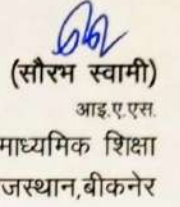 (सौरभ स्वामी)
आइ.ए.एस.
माध्यमिक शिक्षा
जस्थान,बीकनेर